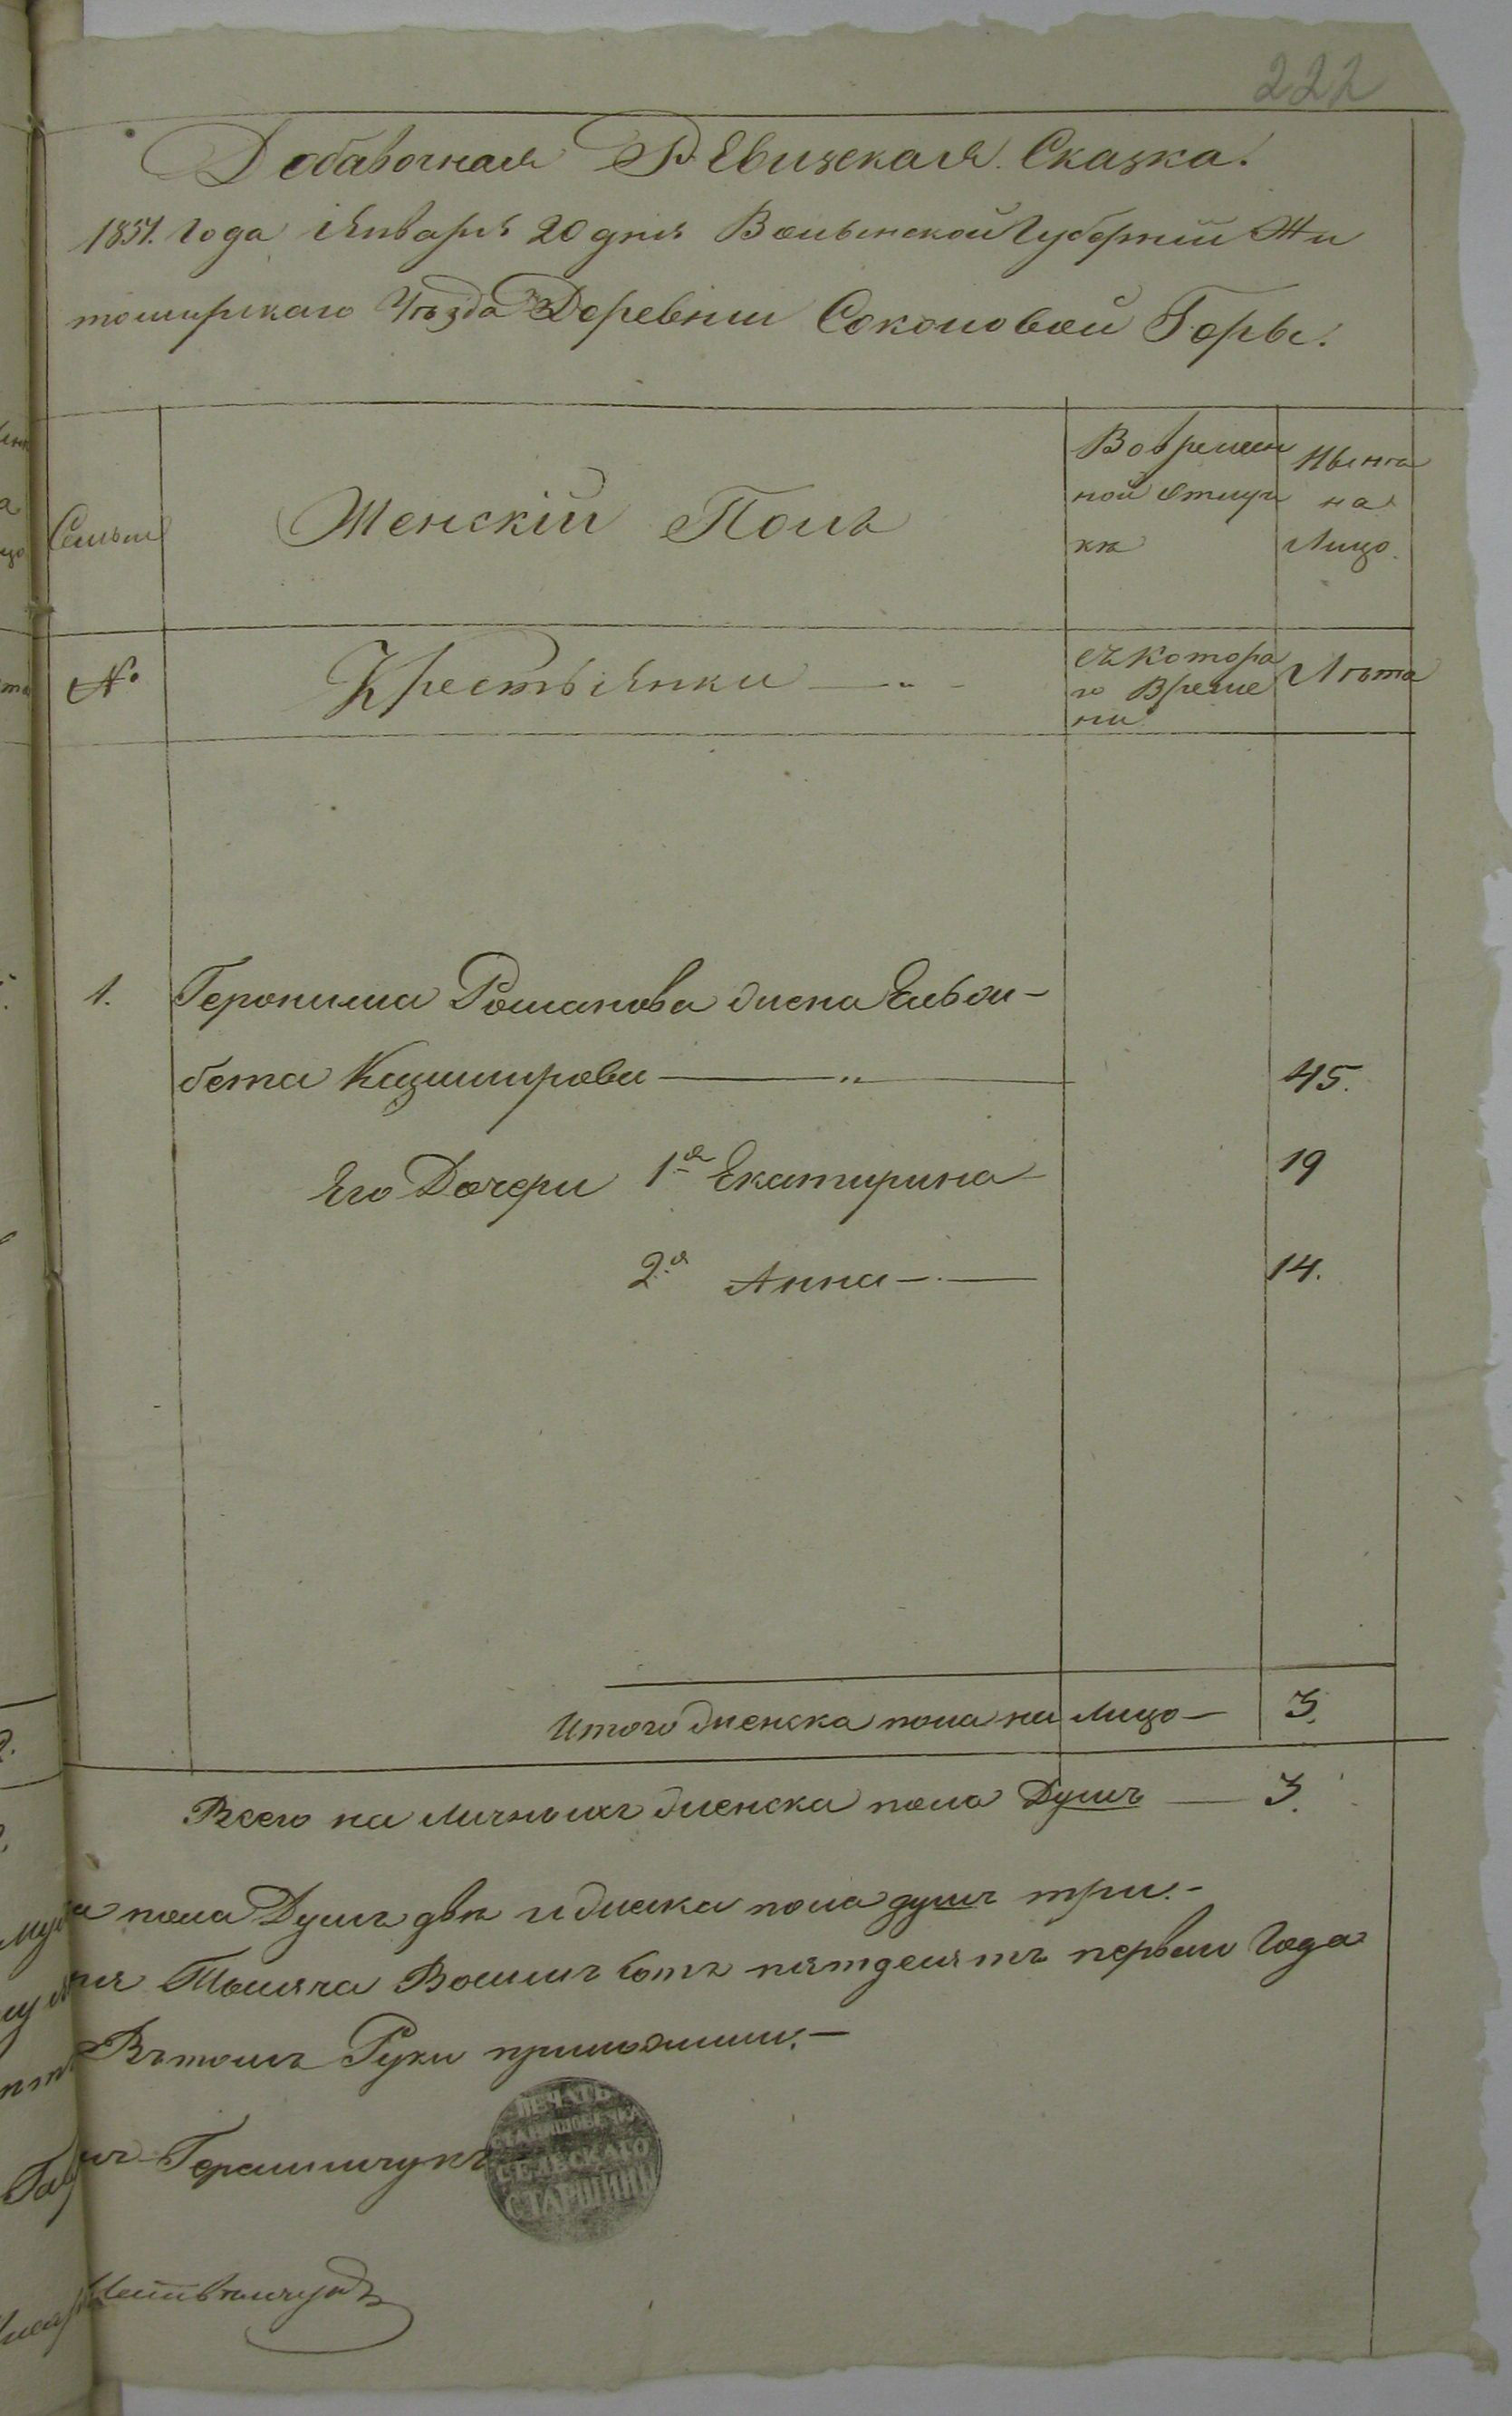 222
Добавочная Ревизская Сказка.
1851. Года Января 20 дня Волынской Губернiи Жи
томирскаго Уѣзда Деревни Соколовой Горы.
Семьи
Женскiй Полъ
Во времен
ной отлуч
кѣ
Нынѣ
на
Лицо.
№
Крестьянки
съ котора
го Време
ни
Лѣта
1. Геронима Романова жена Ельжи-
бета Казимирова 45.
Его Дочери 1я Екатирина 19
2я Анна 14.
Итого женска пола на Лицо 3.
Всего на личныхъ женска пола Душъ 3.
пола Душъ двѣ и женска пола душъ три.
Тысяча Восимъ сотъ пятдесятъ первого Года
Въ томъ Руки приложили.
Герасимчукъ
ПЕЧАТЬ
СЕЛЬСКАГО
СТАРШИНЫ